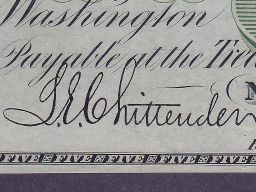 Washington
Payable at the Trea
L.E. Chittenden
N
FIVE FIVE FIVE FIVE FIVE